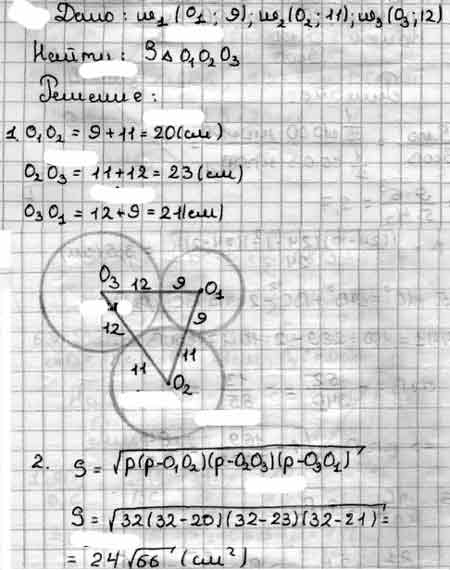 Дано: ω₁(O₁; 9); ω₂(O₂; 11); ω₃(O₃; 12)
Найти: S△O₁O₂O₃
Решение:
1. O₁O₂ = 9 + 11 = 20(см)
O₂O₃ = 11 + 12 = 23(см)
O₃O₁ = 12 + 9 = 21(см)
O₃ 12 9 O₁
12 9
11 11
O₂
2. S = √p(p-O₁O₂)(p-O₂O₃)(p-O₃O₁)
S = √32(32-20)(32-23)(32-21) =
= 24√66 (см²)